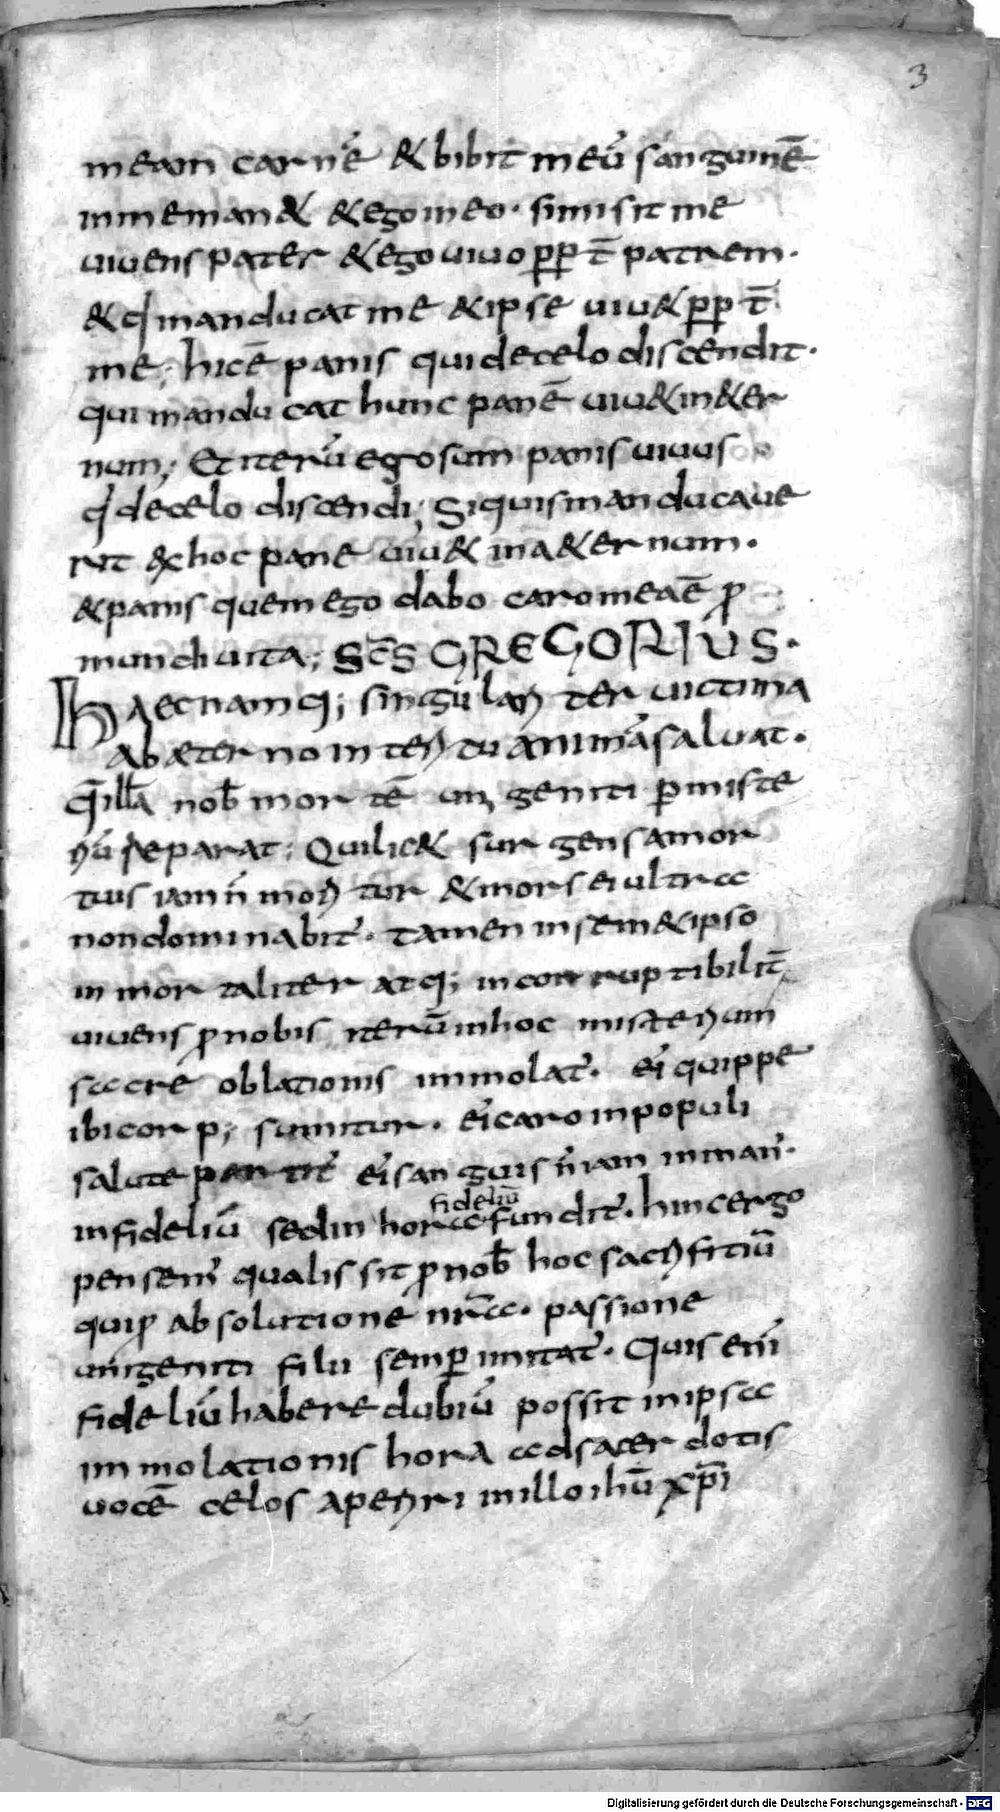 3
meam carnē & bibit meū sanguinē
in me man& & ego in eo · sicut misit me
uiuens pater & ego uiuo ꝓpt̄ patrem ·
& qͥ manducat me & ipse uiu& ꝓpt̄
me ; hic ē panis qui de celo discendit ·
qui manducat hunc panē uiu& in &er
num ; Et iterū ego sum panis uiuus
qͥ de celo discendi ; Si quis manducaue
rit ex hoc pane uiu& in a&ernum ·
& panis quem ego dabo caro mea ē ꝓ
mundi uita ; SC̄S GREGORIUS ·
Haec namq; singulariter uictima
ab aeterno interitu animā saluat ·
q̄ illā nob̄ mortē unigeniti ꝑ miste
riū reparat ; Qui lic& surgens a mor
tuis iam n̄ moritur & mors ei ultra
non dominabit̄ · tamen in sem&ipso
inmortaliter atq; incorruptibilit̄
uiuens ꝓ nobis iterū in hoc misterium
sacre oblationis immolat̄ · ei quippe
ibi corp; sumitur · ei caro in populi
salute partit̄ ei sanguis n̄ iam in man̄ ·
fideliū
infideliū sed in hora fundit̄ · hinc ergo
pensem̄ qualis sit ꝓ nob̄ hoc sacrifitiū
qui ꝓ absolutione nr̄a · passione
unigeniti filii semꝑ imitat̄ · Quis eni
fideliū habere dubiū possit in ipsa
immolationis hora ad sacerdotis
uocē celos aperiri in illo ihū xp̄i
Digitalisierung gefördert durch die Deutsche Forschungsgemeinschaft - DFG